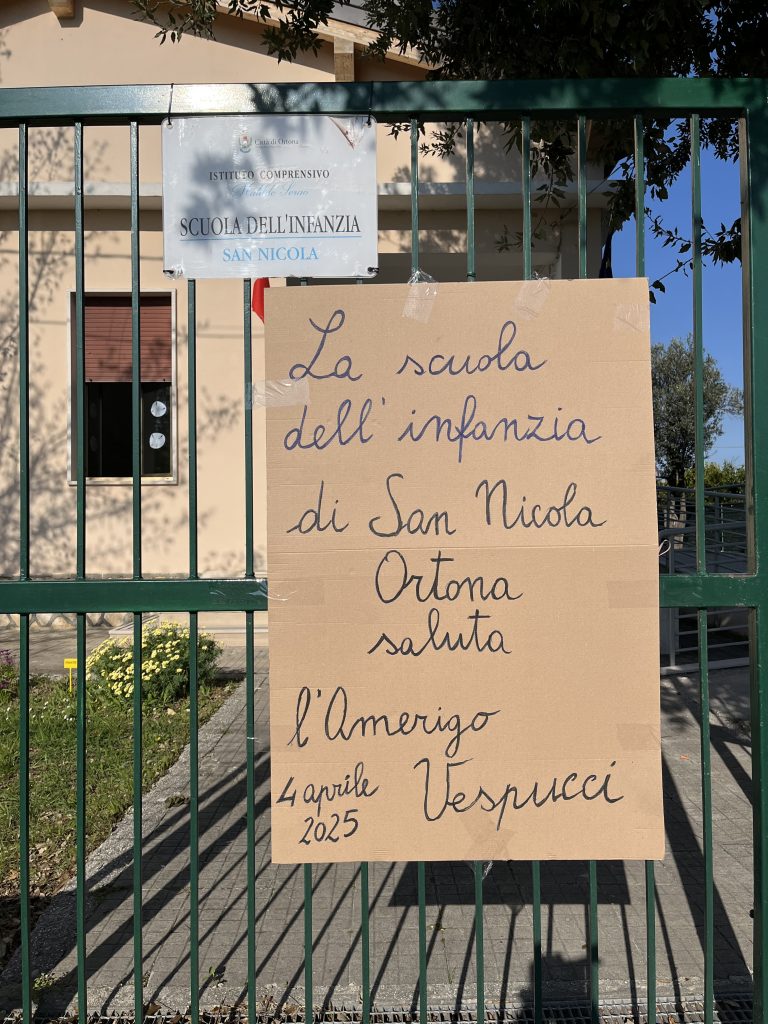 Città di Ortona
ISTITUTO COMPRENSIVO
SCUOLA DELL'INFANZIA
SAN NICOLA
La scuola
dell'infanzia
di San Nicola
Ortona
saluta
l'Amerigo
Vespucci
4 aprile
2025